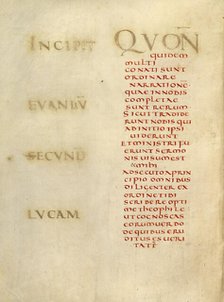 INCIPIT
EVANLV̄
SECVND
LVCAM
QUOÑ
QUIDEM
MULTI
CONATI SUNT
ORDINARE
NARRATIONĒ
QUAE IN NOBIS
COMPLETAE
SUNT RERUM
SICUT TRADIDE
RUNT NOBIS QUI
AB INITIO IPSI
UIDERUNT
ET MINISTRI FU
ERUNT SERMO
NIS UISUM EST
ET MIHI
ADSECUTO A PRIN
CIPIO OMNIBUS
DILIGENTER EX
ORDINE TIBI
SCRIBERE OPTI
ME THEOPHILE
UT COGNOSCAS
EORUM UERBO
DE QUIBUS ERU
DITUS ES UERI
TATĒ